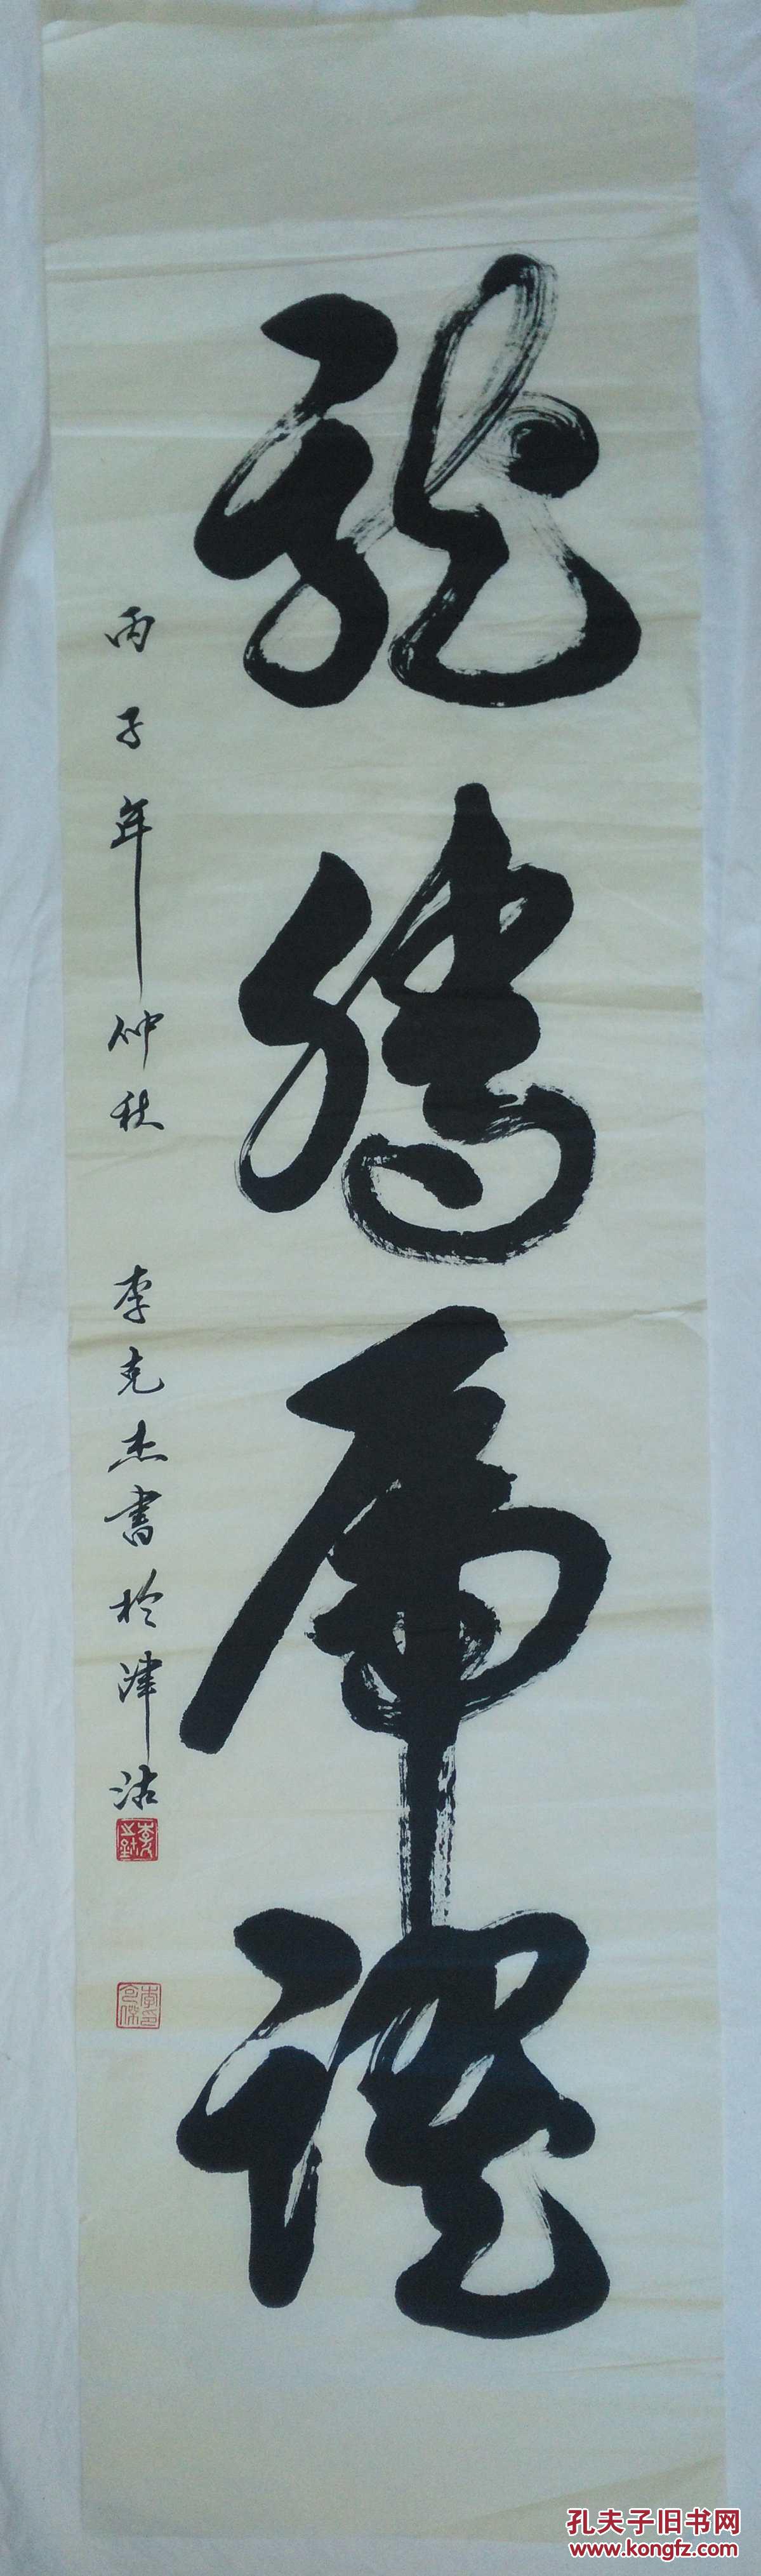 龍騰虎躍
丙子年仲秋 李克杰書於津沽
孔夫子旧书网
www.kongfz.com